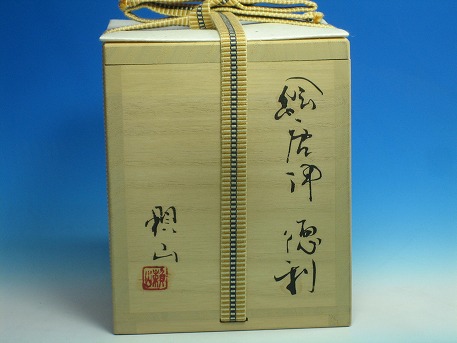 絵唐津 徳利
親山